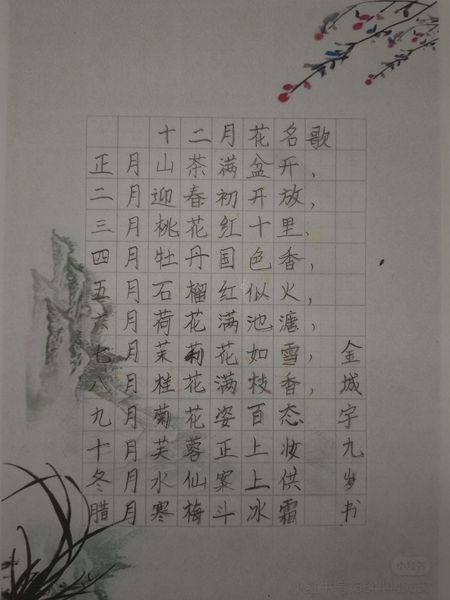 十二月花名歌
正月山茶满盆开，
二月迎春初开放，
三月桃花红十里，
四月牡丹国色香，
五月石榴红似火，
六月荷花满池溏，
七月茉莉花如雪，
八月桂花满枝香，
九月菊花姿百态
十月芙蓉正上妆
冬月水仙案上供
腊月寒梅斗冰霜
金城宇九岁书
小红书